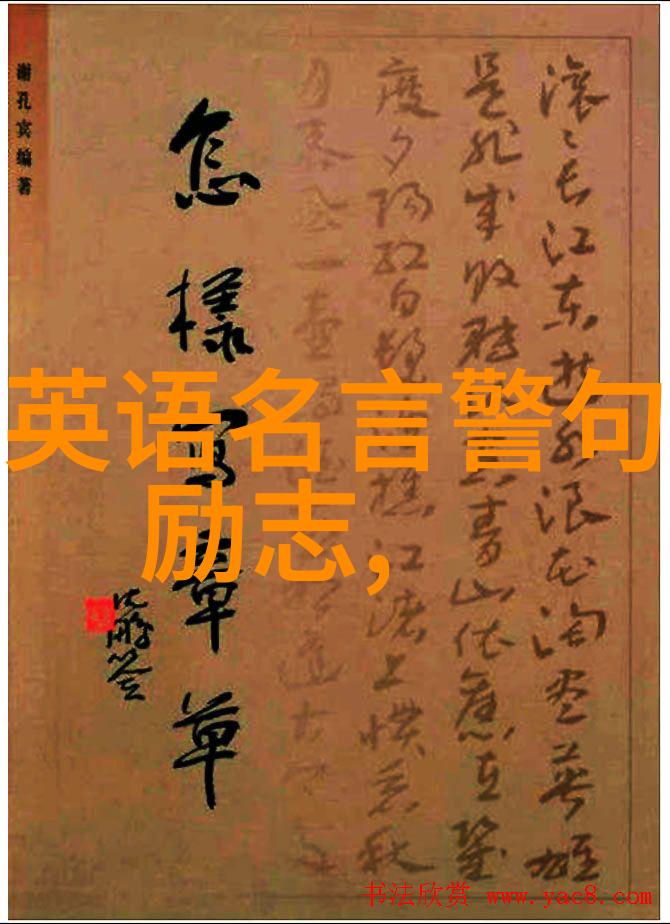 英语名言警句
励志,
谢孔宾编著
怎樣寫章草
沈鹏签
滚〻长江东逝水浪花淘尽英雄
是非成败转头空青山依旧在几
度夕阳红白发渔樵江渚上惯看秋
月春风一壶
书法欣赏 www.yac8.com